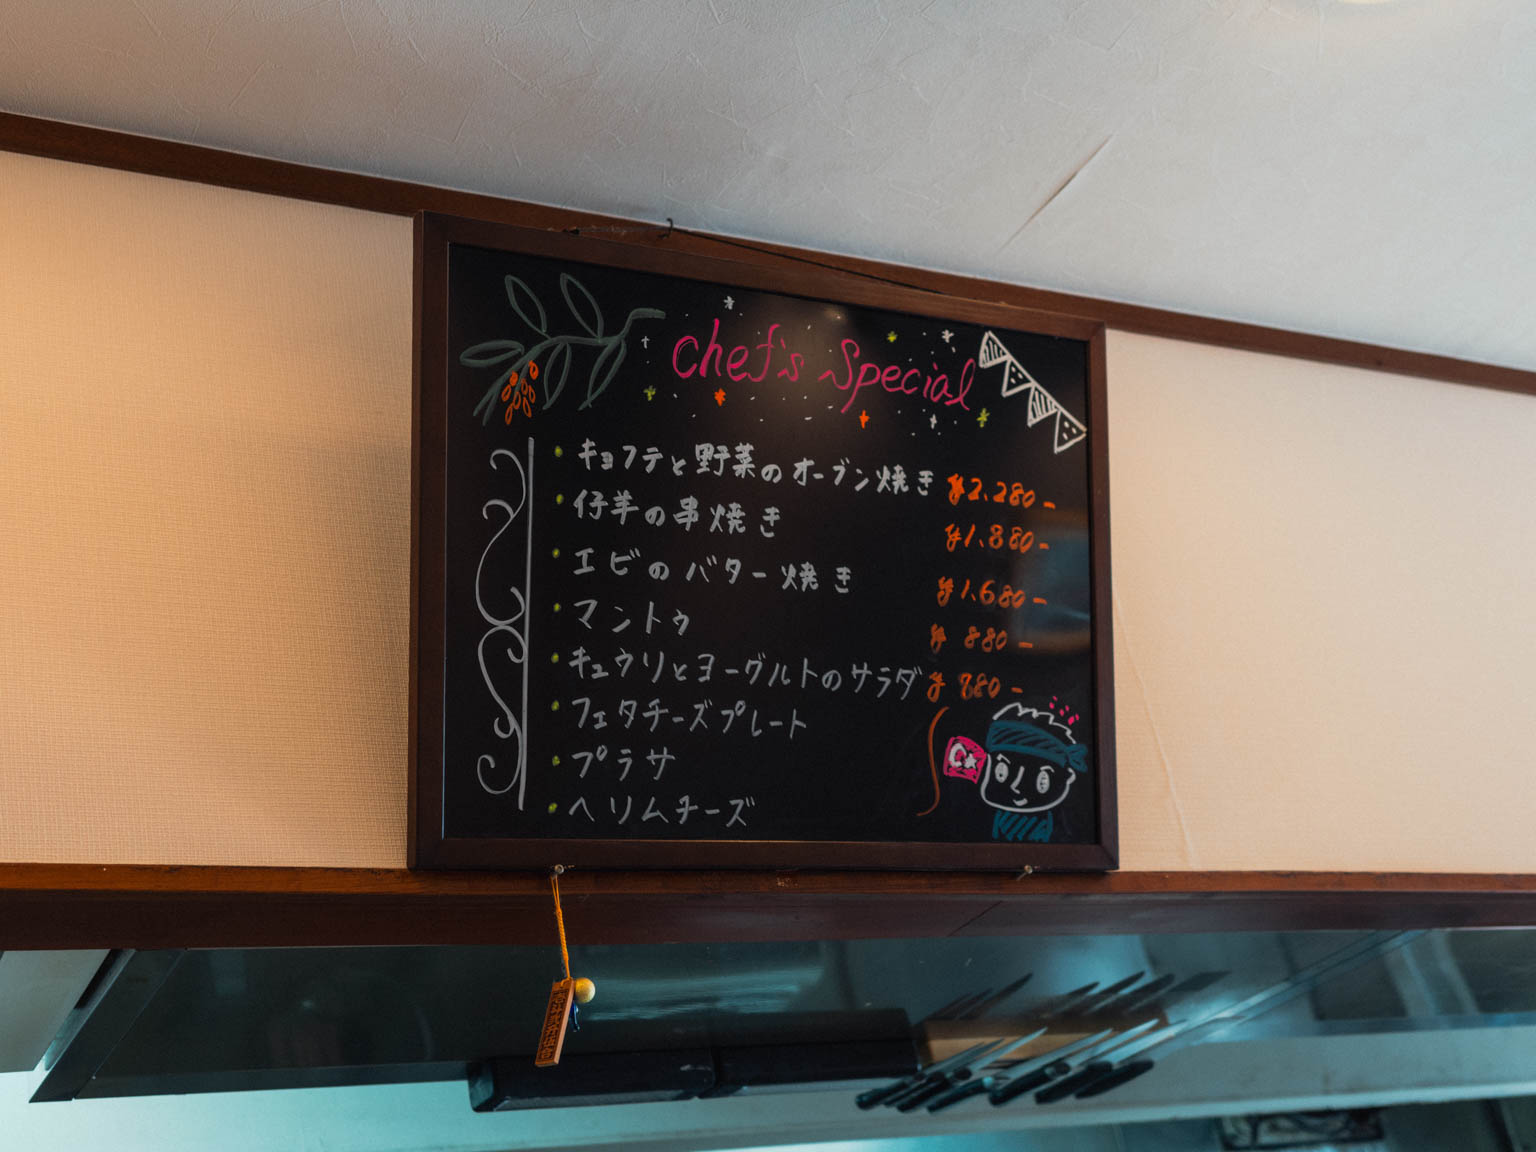 Chef's Special
・キョフテと野菜のオーブン焼き ¥2,280-
・仔羊の串焼き ¥1,880-
・エビのバター焼き ¥1,680-
・マントゥ ¥880-
・キュウリとヨーグルトのサラダ ¥980-
・フェタチーズプレート
・プラサ
・ヘリムチーズ